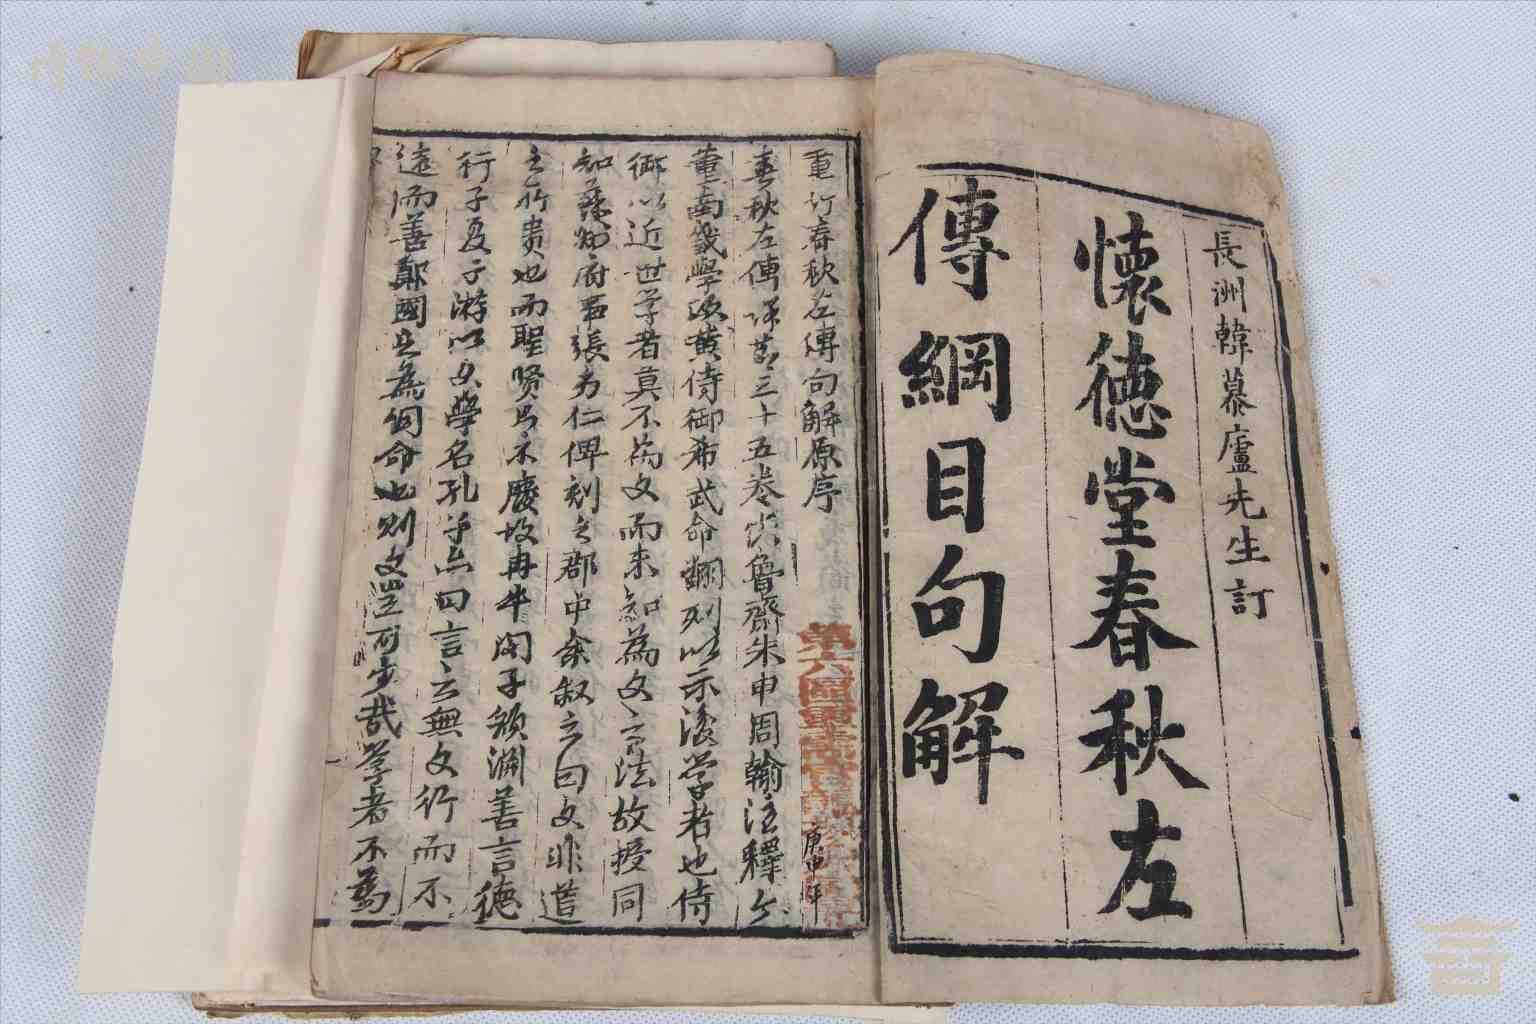 長洲韓慕廬先生訂
懷德堂春秋左
傳綱目句解
重訂春秋左傳句解原序
春秋左傳詳節三十五卷宋魯齋朱申周翰注釋今
董南畿學渙黃侍御希武命翻刻以示後學者也侍
御以近世学者莫不為文而未知為文之有法故授同
知蘇州府事張為仁俾刻之郡中余叙之曰文非道
之所貴也而聖贤与不廢故冉牛閔子顏淵善言德
行子夏子游以文學名孔子亦曰言之無文行而不
遠而善鄭國之為何命也則文豈可少哉学者不為
庚申年